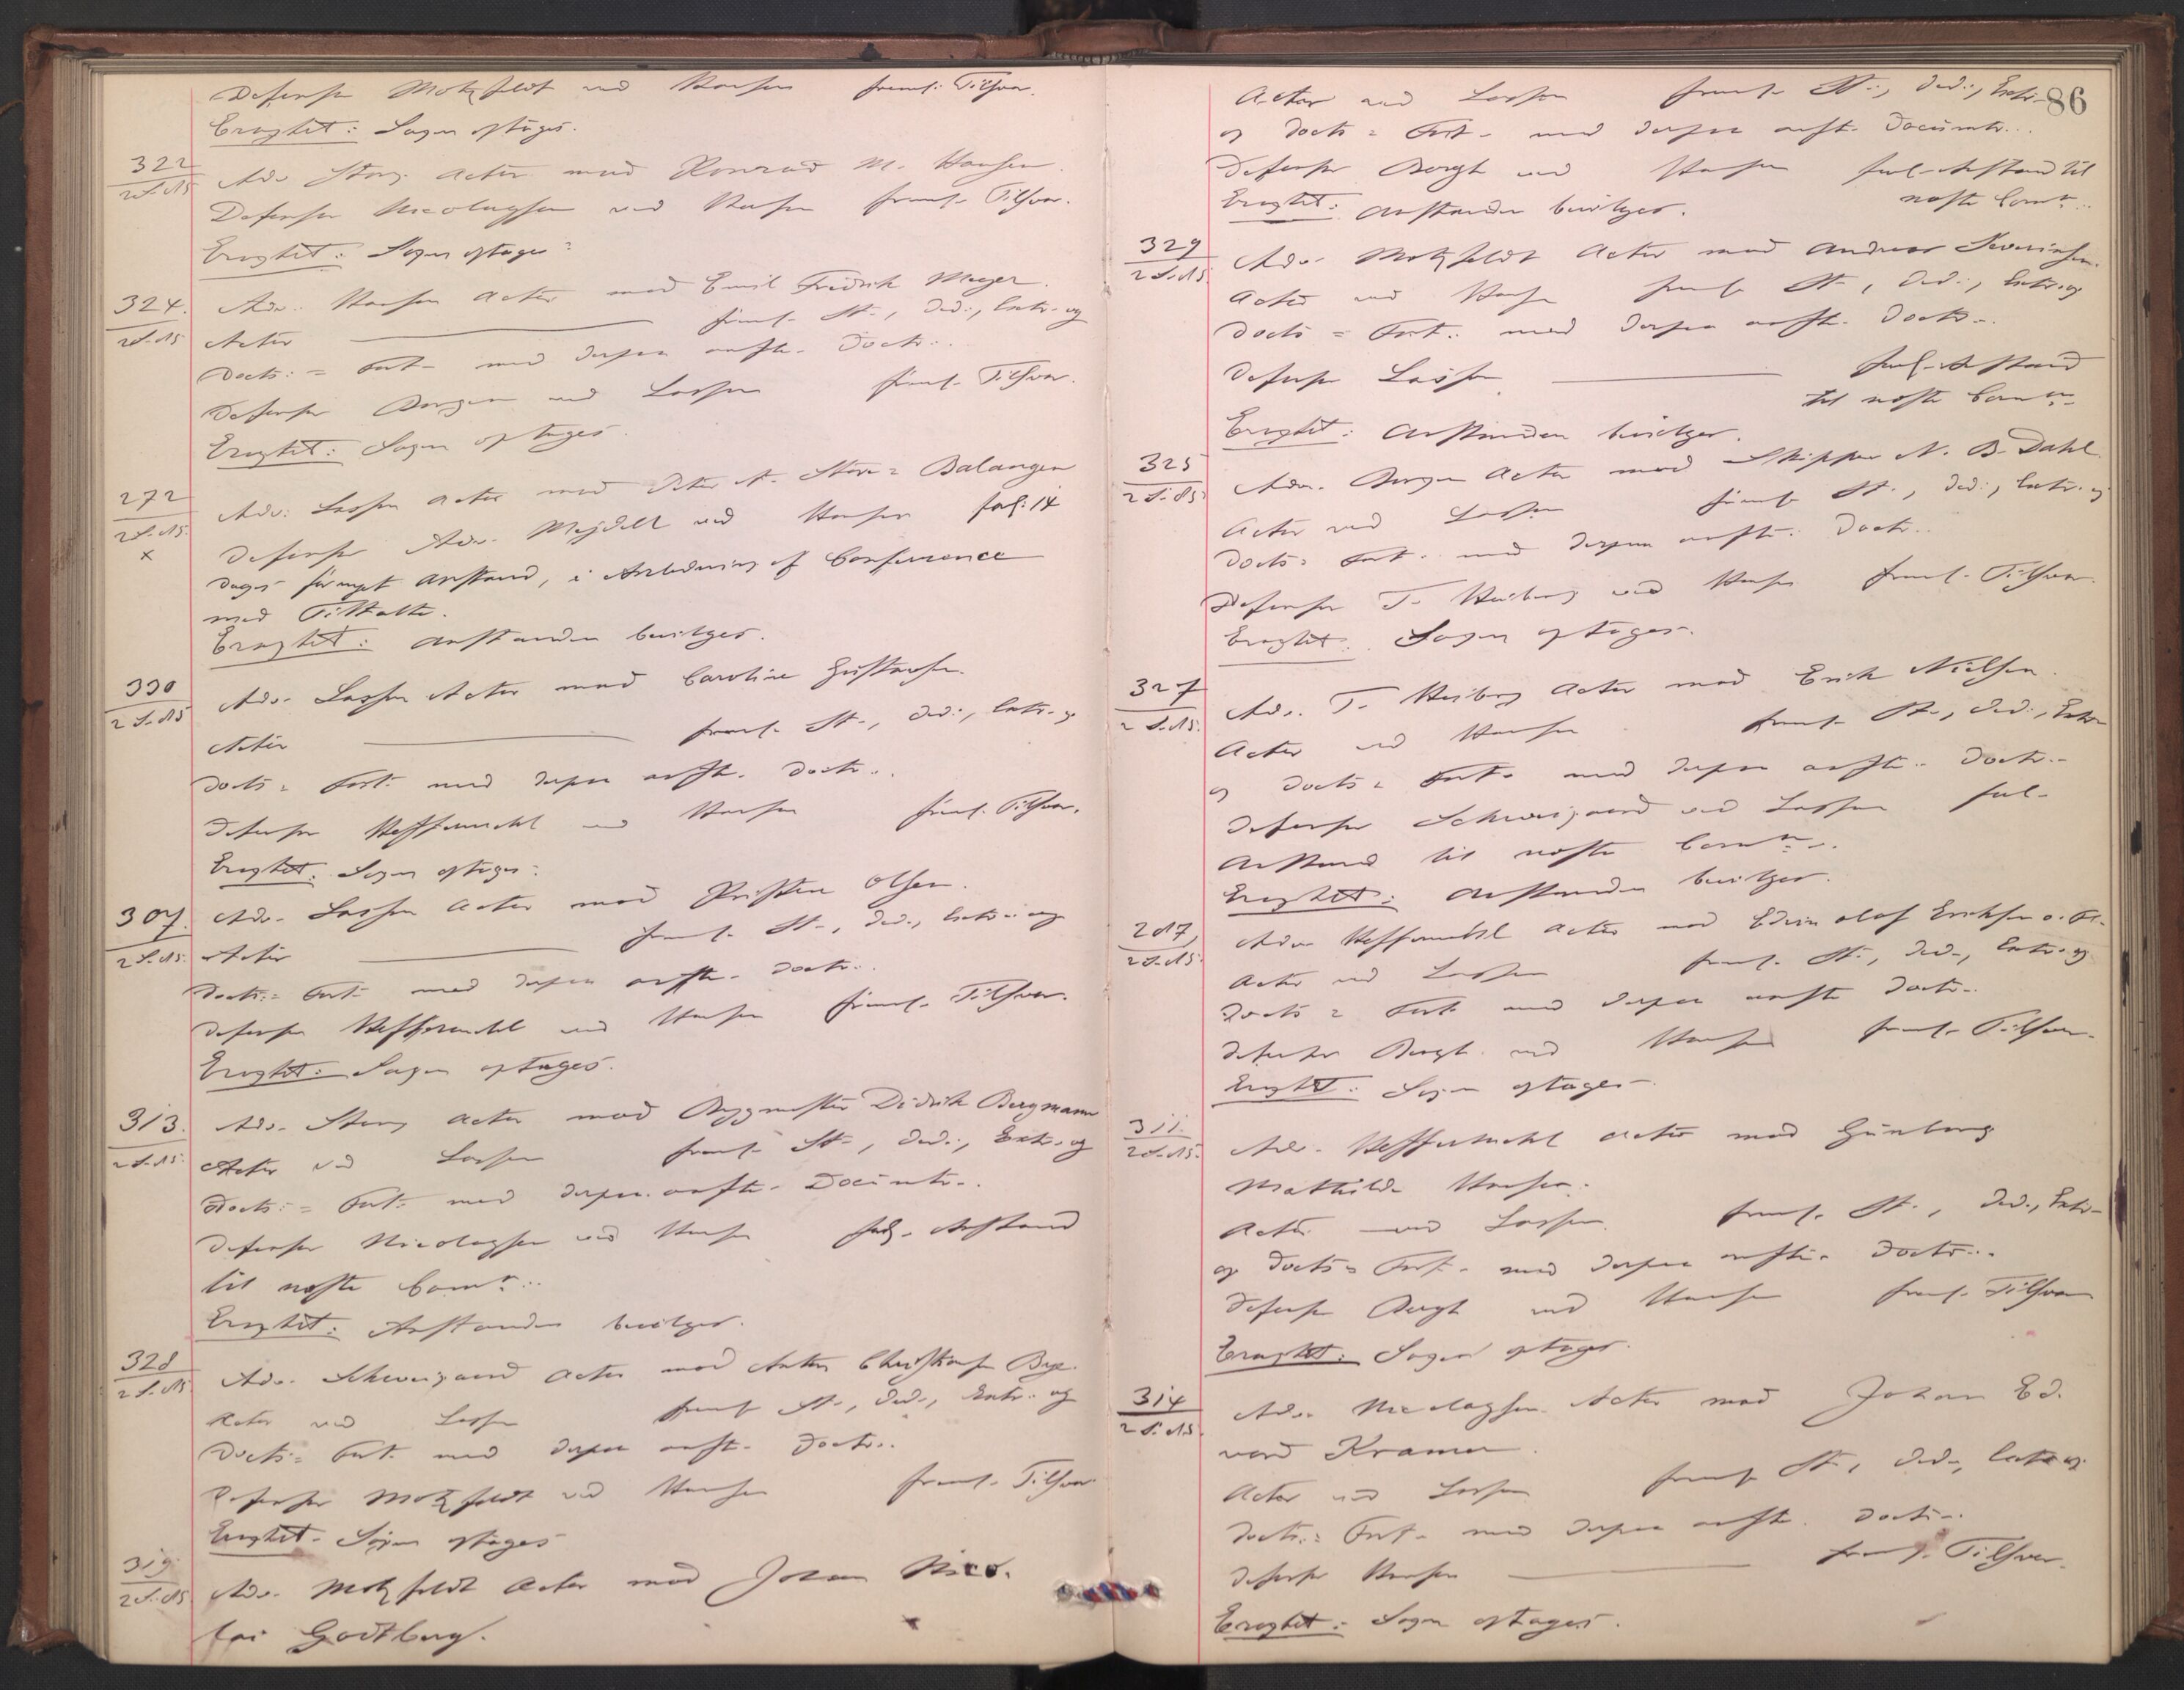 Defensor Motzfeldt ved Hansen freml. Tilsvar.
Eragtet: Sagen optages.
322 Adv. Stang Actor mod Konrad M. Hansen.
2 S. 85 Defensor Nicolaysen ved Hansen freml. Tilsvar.
Eragtet: Sagen optages.
324. Adv. Hansen Actor mod Emil Fredrik Meyer.
2 S. 85 Actor freml. St., Ded., Extr. og
Docts: Fort. med derpaa anfte. Doctr.
Defensor Berger ved Lassen freml. Tilsvar.
Eragtet: Sagen optages.
272 Adv. Lassen Actor mod Peter A. Store-Balangen
2 S. 85. Defensor Adv. Mejdell ved Hansen forl. 14
x Dages fornyet Anstand, i Anledning af Conference
med Tiltalte.
Eragtet: Anstanden bevilges.
330 Adv. Lassen Actor mod Caroline Gustavsen.
2 S. 85 Actor freml. St., Ded., Extr. og
Docts: Fort. med derpaa anfte. Doctr.
Defensor Heffermehl ved Hansen freml. Tilsvar.
Eragtet: Sagen optages.
307. Adv. Lassen Actor mod Kristen Olsen.
2 S. 85. Actor freml. St., Ded., Extr. og
Docts: Fort. med derpaa anfte. Doctr.
Defensor Heffermehl ved Hansen freml. Tilsvar.
Eragtet: Sagen optages.
313. Adv. Stang Actor mod Bygmester Didrik Bergmann
2 S. 85. Actor ved Lassen freml. St., Ded., Extr. og
Docts: Fort. med derpaa anfte. Documtr.
Defensor Nicolaysen ved Hansen forl. Anstand
til næste Comn.
Eragtet: Anstanden bevilges.
328 Adv. Schweigaard Actor mod Anton Christensen Bye.
2 S. 85 Actor ved Lassen freml. St., Ded., Extr. og
Docts: Fort. med derpaa anfte. Doctr.
Defensor Motzfeldt ved Hansen freml. Tilsvar
Eragtet. Sagen optages
319. Adv. Motzfeldt Actor mod Johan Nico-
2 S. 85 lai Godtberg.
86
Actor ved Lassen freml. St., Ded., Extr.
og Docts: Fort. med derpaa anfte. Documtr.
Defensor Bergh ved Hansen forl. Anstand til
næste Comn.
Eragtet: Anstanden bevilges.
329 Adv. Motzfeldt Actor mod Andreas Severinsen.
2 S. 85. Actor ved Hansen freml. St., Ded., Extr. og
Docts: Fort. med derpaa anfte. Doctr.
Defensor Lassen forl. Anstand
til næste Comn.
Eragtet: Anstanden bevilges.
325 Adv. Berger Actor mod Skipper N. B. Dahl
2 S. 85. Actor ved Lassen freml. St., Ded., Extr. og
Docts: Fort. med derpaa anfte. Doctr.
Defensor T. Heiberg ved Hansen freml. Tilsvar.
Eragtet: Sagen optages.
327 Adv. T. Heiberg Actor mod Erik Nielsen.
2 S. 85. Actor ved Hansen freml. St., Ded., Extr.
og Docts: Fort. med derpaa anfte. Doctr.
Defensor Schweigaard ved Lassen forl.
Anstand til næste Comn.
Eragtet: Anstanden bevilges.
287, Adv. Heffermehl Actor mod Edvin Olaf Eriksen o. Fl.
2 S. 85. Actor ved Lassen freml. St., Ded., Extr. og
Docts: Fort. med derpaa anfte Doctr.
Defensor Bergh ved Hansen freml. Tilsvar.
Eragtet: Sagen optages.
311. Adv. Heffermehl Actor mod Gunborg
2 S. 85. Mathilde Hansen.
Actor ved Lassen freml. St., Ded., Extr.
og Docts: Fort. med derpaa anfte. Doctr.
Defensor Bergh ved Hansen freml. Tilsvar
Eragtet: Sagen optages.
314 Adv. Nicolaysen Actor mod Johan Ed-
2 S. 85 vard Kramer.
Actor ved Lassen freml. St., Ded., Extr. og
Docts: Fort. med derpaa anfte. Doctr.
Defensor Hansen freml. Tilsvar.
Eragtet: Sagen optages.